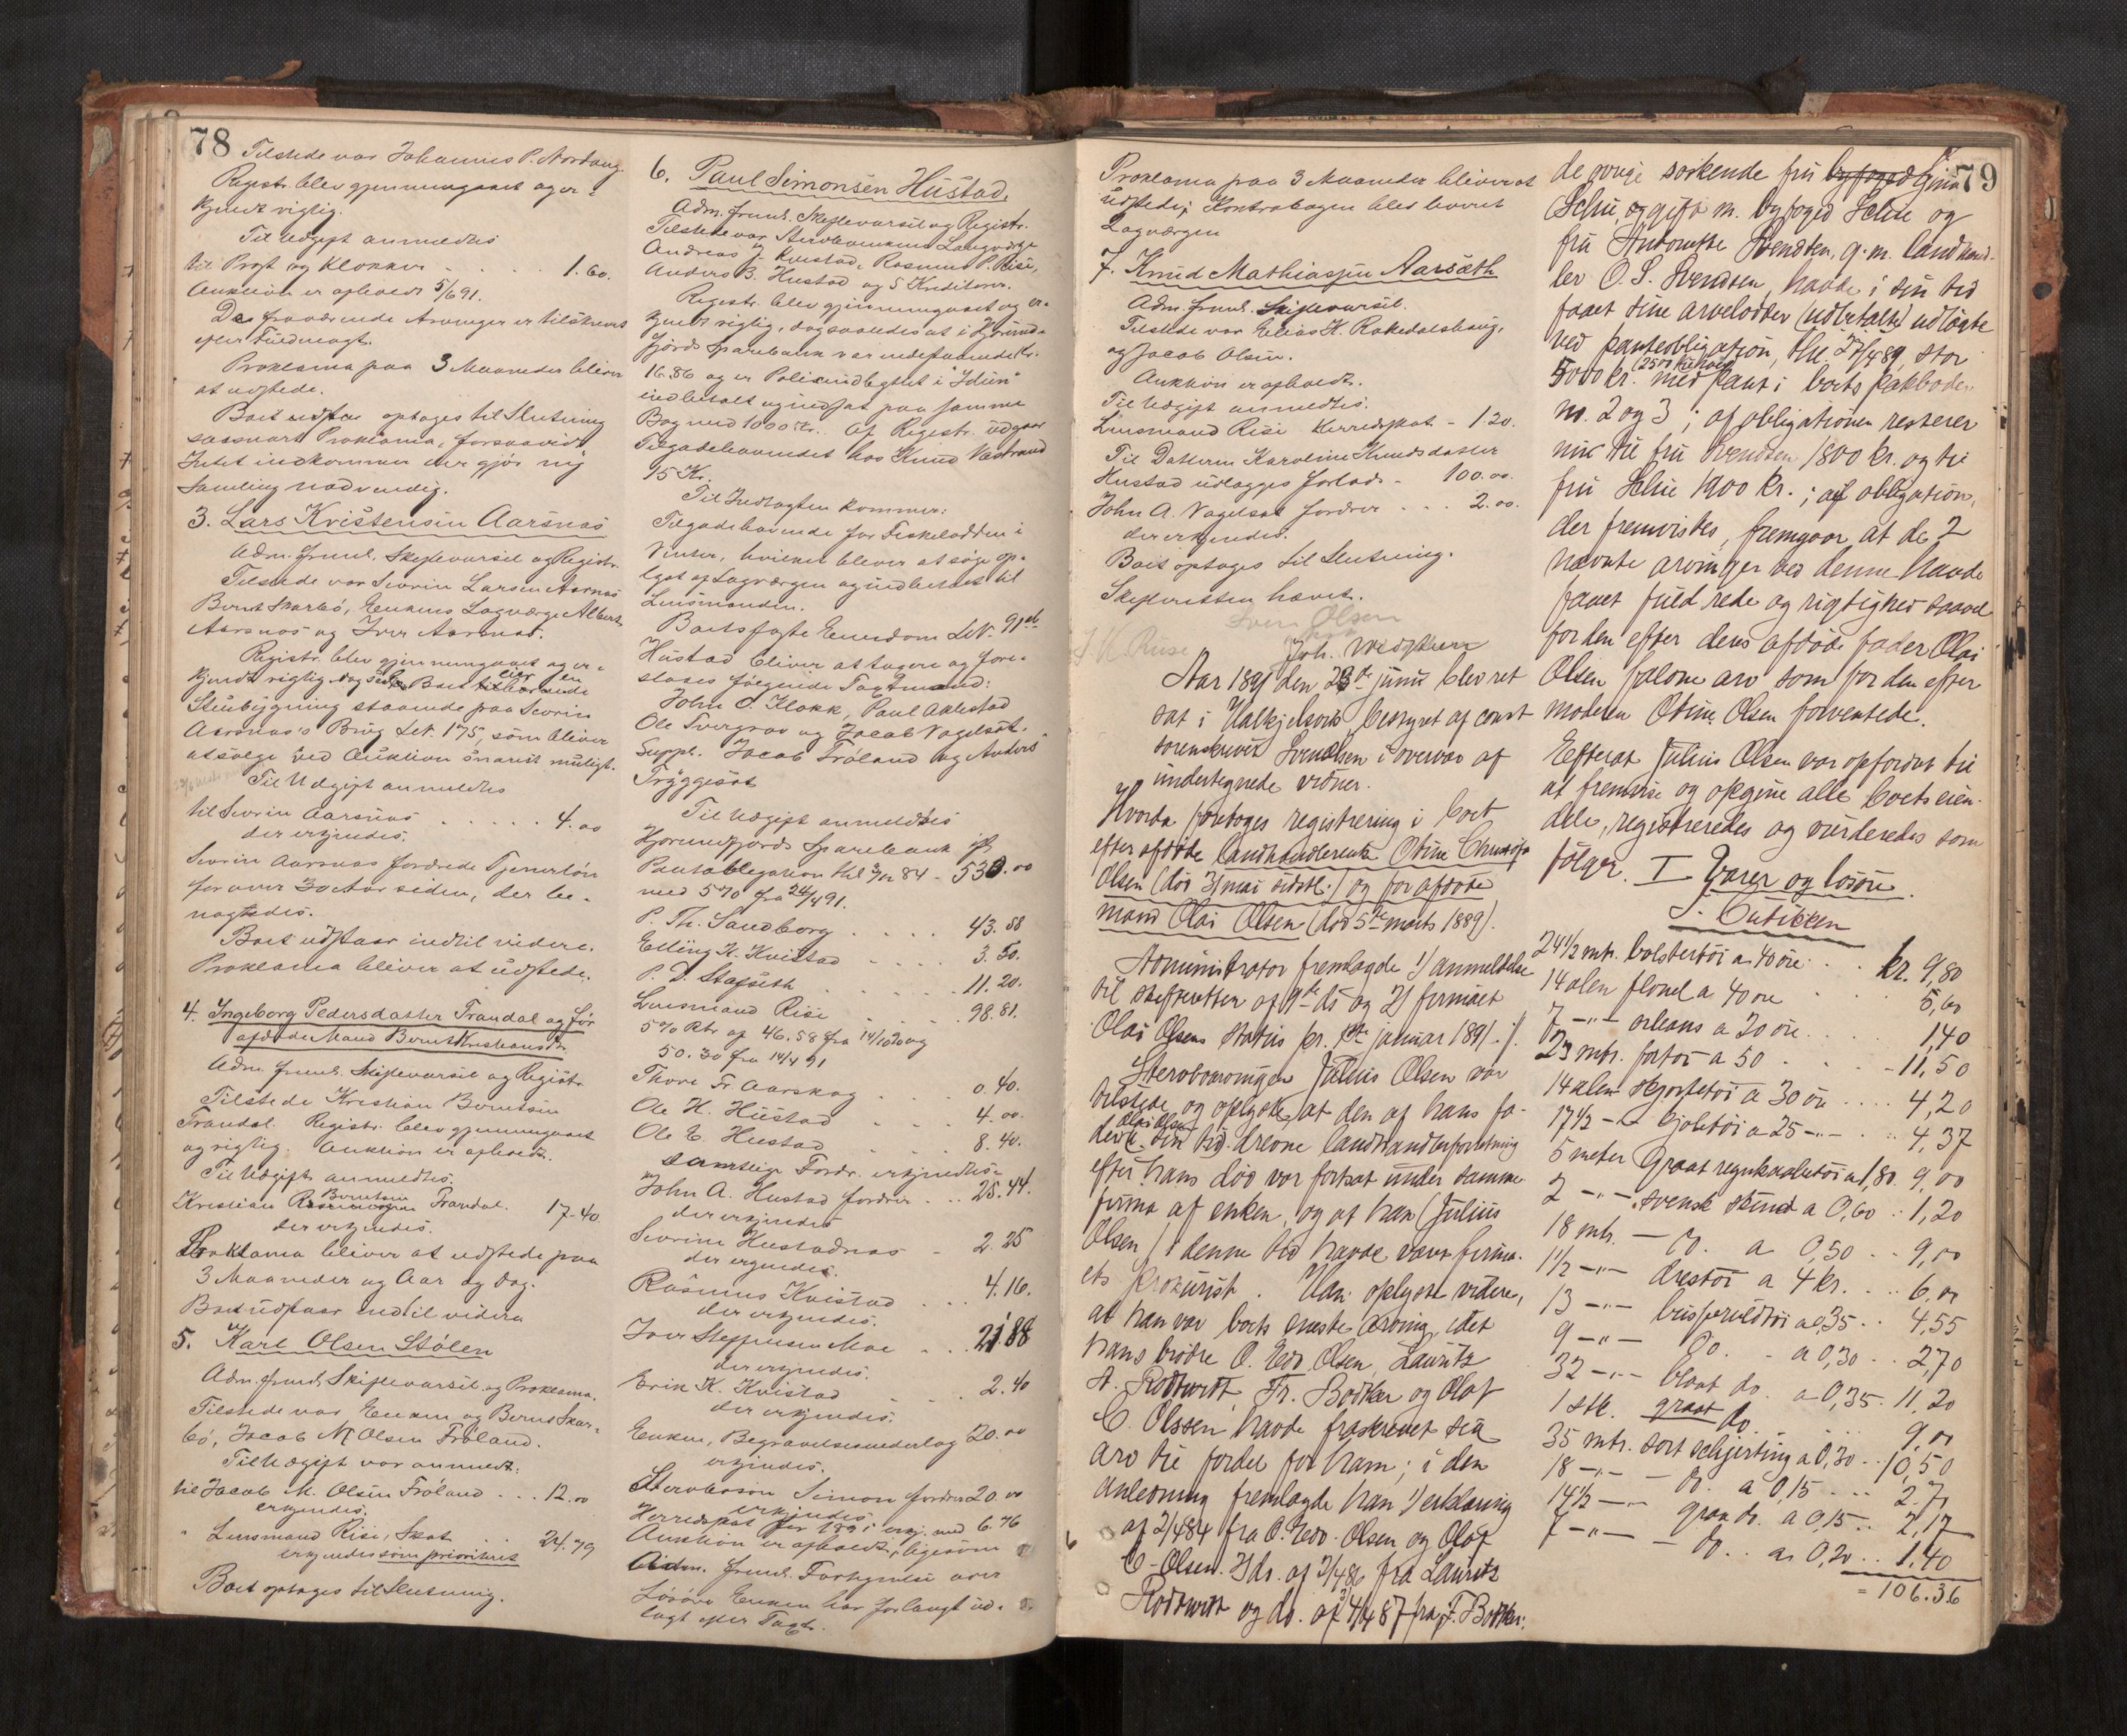 78
Tilstede var Johannes P. Nordang.
Registr. blev gjennemgaaet og er-
kjendt rigtig.
Til Udgift anmeldtes
til Prest og Klokker . . . . 1.60.
Auktion er afholdt 5/6 91.
De fraværende Arvinger er tilskrevet
efter Fuldmagt.
Proklama paa 3 Maaneder bliver
at udstede.
Boet udstaar optages til Slutning
saasnart Proklama, forsaavidt
Intet indkommer der gjør ny
Samling nødvendig.
3. Lars Kristensen Aarsnes
Adm. freml. Skiftevarsel og Registr.
Tilstede var Severin Larsen Aarsnes
Bernt Skarbø, Enkens Lagværge Albert
Aarsnes og Iver Aarsnes.
Registr. blev gjennemgaaet og er-
kjendt rigtig dog Boet eier en
Stuebygning staaende paa Severin
Aarsnes's Brug Løb. 175, som bliver
at sælge ved Auktion snarest muligt.
Til Udgift anmeldtes
til Severin Aarsnes . . . . . 4.00
der erkjendes.
Severin Aarsnes fordrede Tjenerløn
for over 30 Aar siden, der be-
nægtedes.
Boet udstaar indtil videre.
Proklama bliver at udstede.
4. Ingeborg Pedersdatter Trandal og før
afdøde Mand Bernt Kristians.
Adm. freml. Skiftevarsel og Registr.
Tilstede Kristian Berntsen
Trandal. Registr. blev gjennemgaaet
og rigtig. Auktion er afholdt.
Til Udgift anmeldtes.
Kristian Berntsen Trandal. 17-40
der erkjendes.
Proklama bliver at udstede paa
3 Maaneder og Aar og dag.
Boet udstaar indtil videre
5. Karl Olsen Stølen
Adm. freml. Skiftevarsel og Proklama.
Tilstede var Enken og Bernt Skar-
bø, Jacob M Olsen Frøland.
Til Udgift var anmeldt:
til Jacob M. Olsen Frøland . . . 12.00
erkjendes.
" Lensmand Rise, Skat . . . 24.79
erkjendes som prioriteret
Boet optages til Slutning.
6. Paul Simonsen Hustad.
Adm. freml. Skiftevarsel og Registr.
Tilstede var Stervboenkens Laugværge
Andreas J. Kvistad, Rasmus P. Rise,
Anders B. Hustad og 5 Kreditorer.
Registr. blev gjennemgaaet og er-
kjendt rigtig, dog saaledes at i Hjørund-
fjords Sparebank var indestaaende Kr.
16.86 og er Policeindtægtet i "Idun"
indbetalt og indsat paa samme
Bog med 1000 Kr. Af Registr. udgaar
Tilgodehavendet hos Knud Vastrand
15 Kr.
Til Indtægten kommer:
Tilgodehavende for Fiskelodden i
Vinter, hvilket bliver at søge op-
gjort af Lagværgen og indbetalt til
Lensmanden.
Boets faste Eiendom Løb. 91
Hustad bliver at tagere og fore-
slaaes følgende Taxtmænd:
John O. Klokk, Paul Aklestad
Ole Tvergrov og Jacob Vagelsæt.
Suppl. Jacob Frøland og Anders
Tryggesæt
Til Udgift anmeldtes
Hjørundfjords Sparebank iflg
Panteobligation thl. 84 - 530.00
med 5% fra 24/4 91.
P. Th. Sandborg . . . . 43.58
Elling K. Kvistad . . . . 3.50.
P. D. Stafseth . . . . 11.20.
Lensmand Rise . . . . 98.81.
5% Rtr af 46.58 fra 14/10 20 og
50.30 fra 14/4 91
Thore Fr Aarskog . . . 0.40.
Ole K. Hustad . . . 4.00.
Ole E. Hustad . . . 8.40.
Samtlige Fordr. erkjendtes.
John A. Hustad fordrer . . . 25.44.
der erkjendes
Severine Hustadnes - 2.25
der erkjendes.
Rasmus Kvistad . . . 4.16.
der erkjendes.
Iver Steffensen Moe . . . 21.88
der erkjendes.
Erik K. Kvistad . . 2.40
der erkjendes.
Enken, Begravelsesudlæg 20.00
erkjendes.
Stervbosøn Simon fordrer 20.00
erkjendes
Herredskat for 1891 erkj. med 6.76
Auktion er afholdt, ligesom
Adm. freml. Fortegnelse over
Løsøre Enken har forlangt ud-
lagt efter Taxt.
Proklama paa 3 Maaneder bliver at
udstede; Kontrabogen blev leveret
Lagværgen
7. Knud Mathiassen Aarsæth
Adm. freml. Skiftevarsel.
Tilstede var Elias K. Rakedalshaug,
og Jacob Olsen.
Auktion er afholdt.
Til Udgift anmeldtes.
Lensmand Rise Herredskat - 1.20.
Til Datteren Karoline Knudsdatter
Hustad udlægges forlods - 100.00.
John A. Vagelsæt fordrer . . . 2.00.
der erkjendes.
Boet optages til Slutning.
Skifteretten hævet.
Sven Olsen
J. K. Riise
Joh.
Aar 1891 den 23de juni blev ret
sat i Valkjelsvik bestyret af const
sorenskriver Svendsen i overvær af
undertegnede vidner.
Hvorda foretoges registrering i boet
efter afdøde landhandlerenke Oline
Olsen (død 31 mai sidstl.) og for afdøde
mand Olai Olsen (død 5te marts 1889).
Administrator fremlagde 1) anmeldelse
til skifteretten af 9de ds og 2) firmaet
Olai Olsens status pr. 1ste januar 1891 ./.
Stervboarvingen Julius Olsen var
tilstede og oplyste, at den af hans fa-
der Olai Olsen i sin tid drevne landhandlerforretning
efter hans død var fortsat under samme
firma af enken, og at han (Julius
Olsen) i denne tid havde været firma-
ets prokurist. Han oplyste videre,
at han var boets eneste arving, idet
hans brødre O. Edv. Olsen, Lauritz
A. Rodtwitt, Fr. Bødtker og Olaf
C. Olssen havde fraskrevet sig
arv til fordel for ham; i den
anledning fremlagde han 1) erklæring
af 2/4 84 fra O. Edv. Olsen og Olaf
C. Olsen. 2) ds. af 2/4 86 fra Lauritz
Rodtwitt og ds. af 4/4 87 fra F. Bødtker.
79
de øvrige søskende fru Gina
Schu, gift m. byfoged Schu og
fru Antonette Svendsen, g. m. landhand-
ler O. S. Svendsen, havde i sin tid
faaet sine arvelodder (udbetalte) udlagte
ved panteobligation, thl. 27/4 89, stor
5000 kr. (2500 til hver) med pant i boets pakboder
no. 2 og 3; af obligationen resterer
nu til fru Svendsen 1800 kr. og til
fru Schu 1900 kr.; af obligation,
der fremvistes, fremgaar, at de 2
nævnte arvinger ved denne havde
faaet fuld rede og rigtighed saavel
for den efter dens afdøde fader Olai
Olsen faldne arv som for den efter
moderen Oline Olsen forventede.
Efterat Julius Olsen var opfordret til
at fremvise og opgive alle boets eien-
dele, registreredes og vurderedes som
følger. I Varer og løsøre
I. Butikken
24 1/2 mtr. bolstertøi a 40 øre . . . kr. 9,80
14 alen flonel a 40 øre . . . 5,60
7 -"- orleans a 20 øre . . . 1,40
23 mtr. fortøi a 50 . . . - 11,50
14 alen skjortetøi a 30 øre . . . . 4,20
17 1/2 -"- kjoletøi a 25 -"- . . . 4,37
5 meter graat regnkaabetøi a 1,80. 9,00
2 -"- svensk a 0,60 . . 1,20
18 mtr. — do. a 0,50 . . 9,00
1 1/2 -"- drestøi a 4 kr. . . . 6,00
13 -"- busseruldtøi a 0,35 . . 4,55
9 -"- do. - a 0,30 . . 2,70
32 -"- blaat do. a 0,35. 11,20
1 stk. graat do. . . . 9,00
35 mtr. sort schjerting a 0,30 . . 10,50
18 -"- — do. a 0,15 . . . 2.70
14 1/2 -"- graa do. a 0,15 . . 2,17
7 -"- — do. . a 0,20 . . 1.40
= 106.36